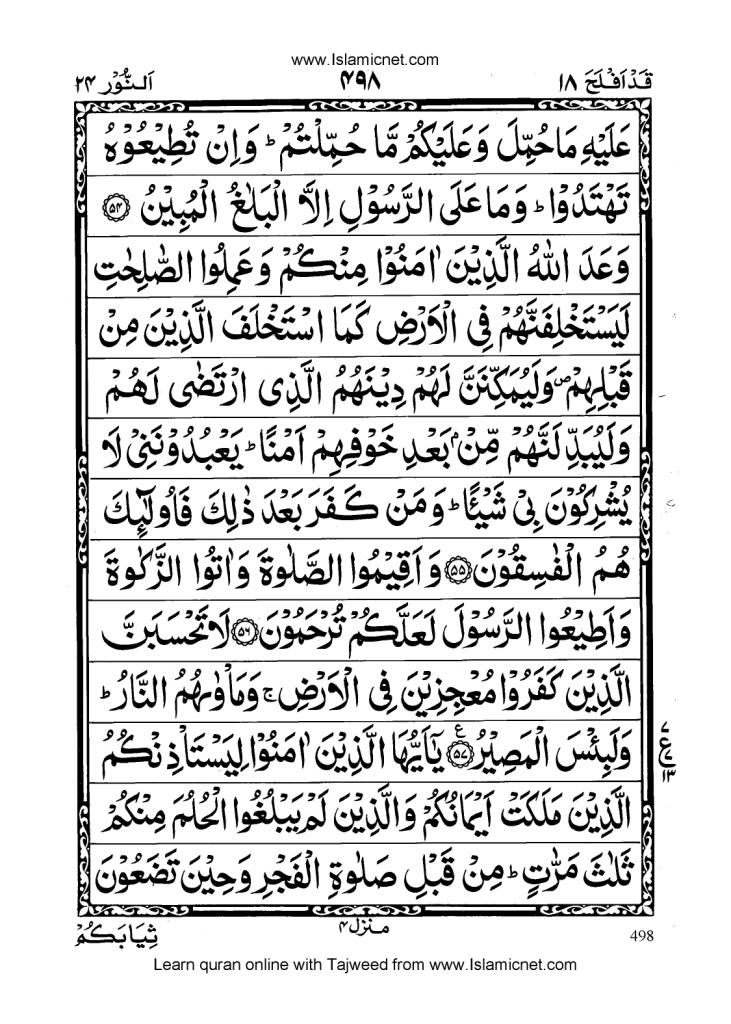 www.Islamicnet.com
قَدْ اَفْلَحَ ١٨
۴۹۸
اَلنُّوْر ٢۴
عَلَيْهِ مَا حُمِّلَ وَعَلَيْكُمْ مَّا حُمِّلْتُمْ ؕ وَاِنْ تُطِيْعُوْهُ
تَهْتَدُوْا ؕ وَمَا عَلَى الرَّسُوْلِ اِلَّا الْبَلٰغُ الْمُبِيْنُ ۵۴
وَعَدَ اللّٰهُ الَّذِيْنَ اٰمَنُوْا مِنْكُمْ وَعَمِلُوا الصّٰلِحٰتِ
لَيَسْتَخْلِفَنَّهُمْ فِي الْاَرْضِ كَمَا اسْتَخْلَفَ الَّذِيْنَ مِنْ
قَبْلِهِمْ ۪ وَلَيُمَكِّنَنَّ لَهُمْ دِيْنَهُمُ الَّذِى ارْتَضٰى لَهُمْ
وَلَيُبَدِّلَنَّهُمْ مِّنْۢ بَعْدِ خَوْفِهِمْ اَمْنًا ؕ يَعْبُدُوْنَنِيْ لَا
يُشْرِكُوْنَ بِيْ شَيْئًا ؕ وَمَنْ كَفَرَ بَعْدَ ذٰلِكَ فَاُولٰٓئِكَ
هُمُ الْفٰسِقُوْنَ ۵۵ وَاَقِيْمُوا الصَّلٰوةَ وَاٰتُوا الزَّكٰوةَ
وَاَطِيْعُوا الرَّسُوْلَ لَعَلَّكُمْ تُرْحَمُوْنَ ۵۶ لَا تَحْسَبَنَّ
الَّذِيْنَ كَفَرُوْا مُعْجِزِيْنَ فِي الْاَرْضِ ۚ وَمَاْوٰىهُمُ النَّارُ ؕ
وَلَبِئْسَ الْمَصِيْرُ ۵٧ ع يٰۤاَيُّهَا الَّذِيْنَ اٰمَنُوْا لِيَسْتَاْذِنْكُمُ
٧ ع ٧ ١٣
الَّذِيْنَ مَلَكَتْ اَيْمَانُكُمْ وَالَّذِيْنَ لَمْ يَبْلُغُوا الْحُلُمَ مِنْكُمْ
ثَلٰثَ مَرّٰتٍ ؕ مِنْ قَبْلِ صَلٰوةِ الْفَجْرِ وَحِيْنَ تَضَعُوْنَ
498
منزل ۴
ثِيَابَكُمْ
Learn quran online with Tajweed from www.Islamicnet.com